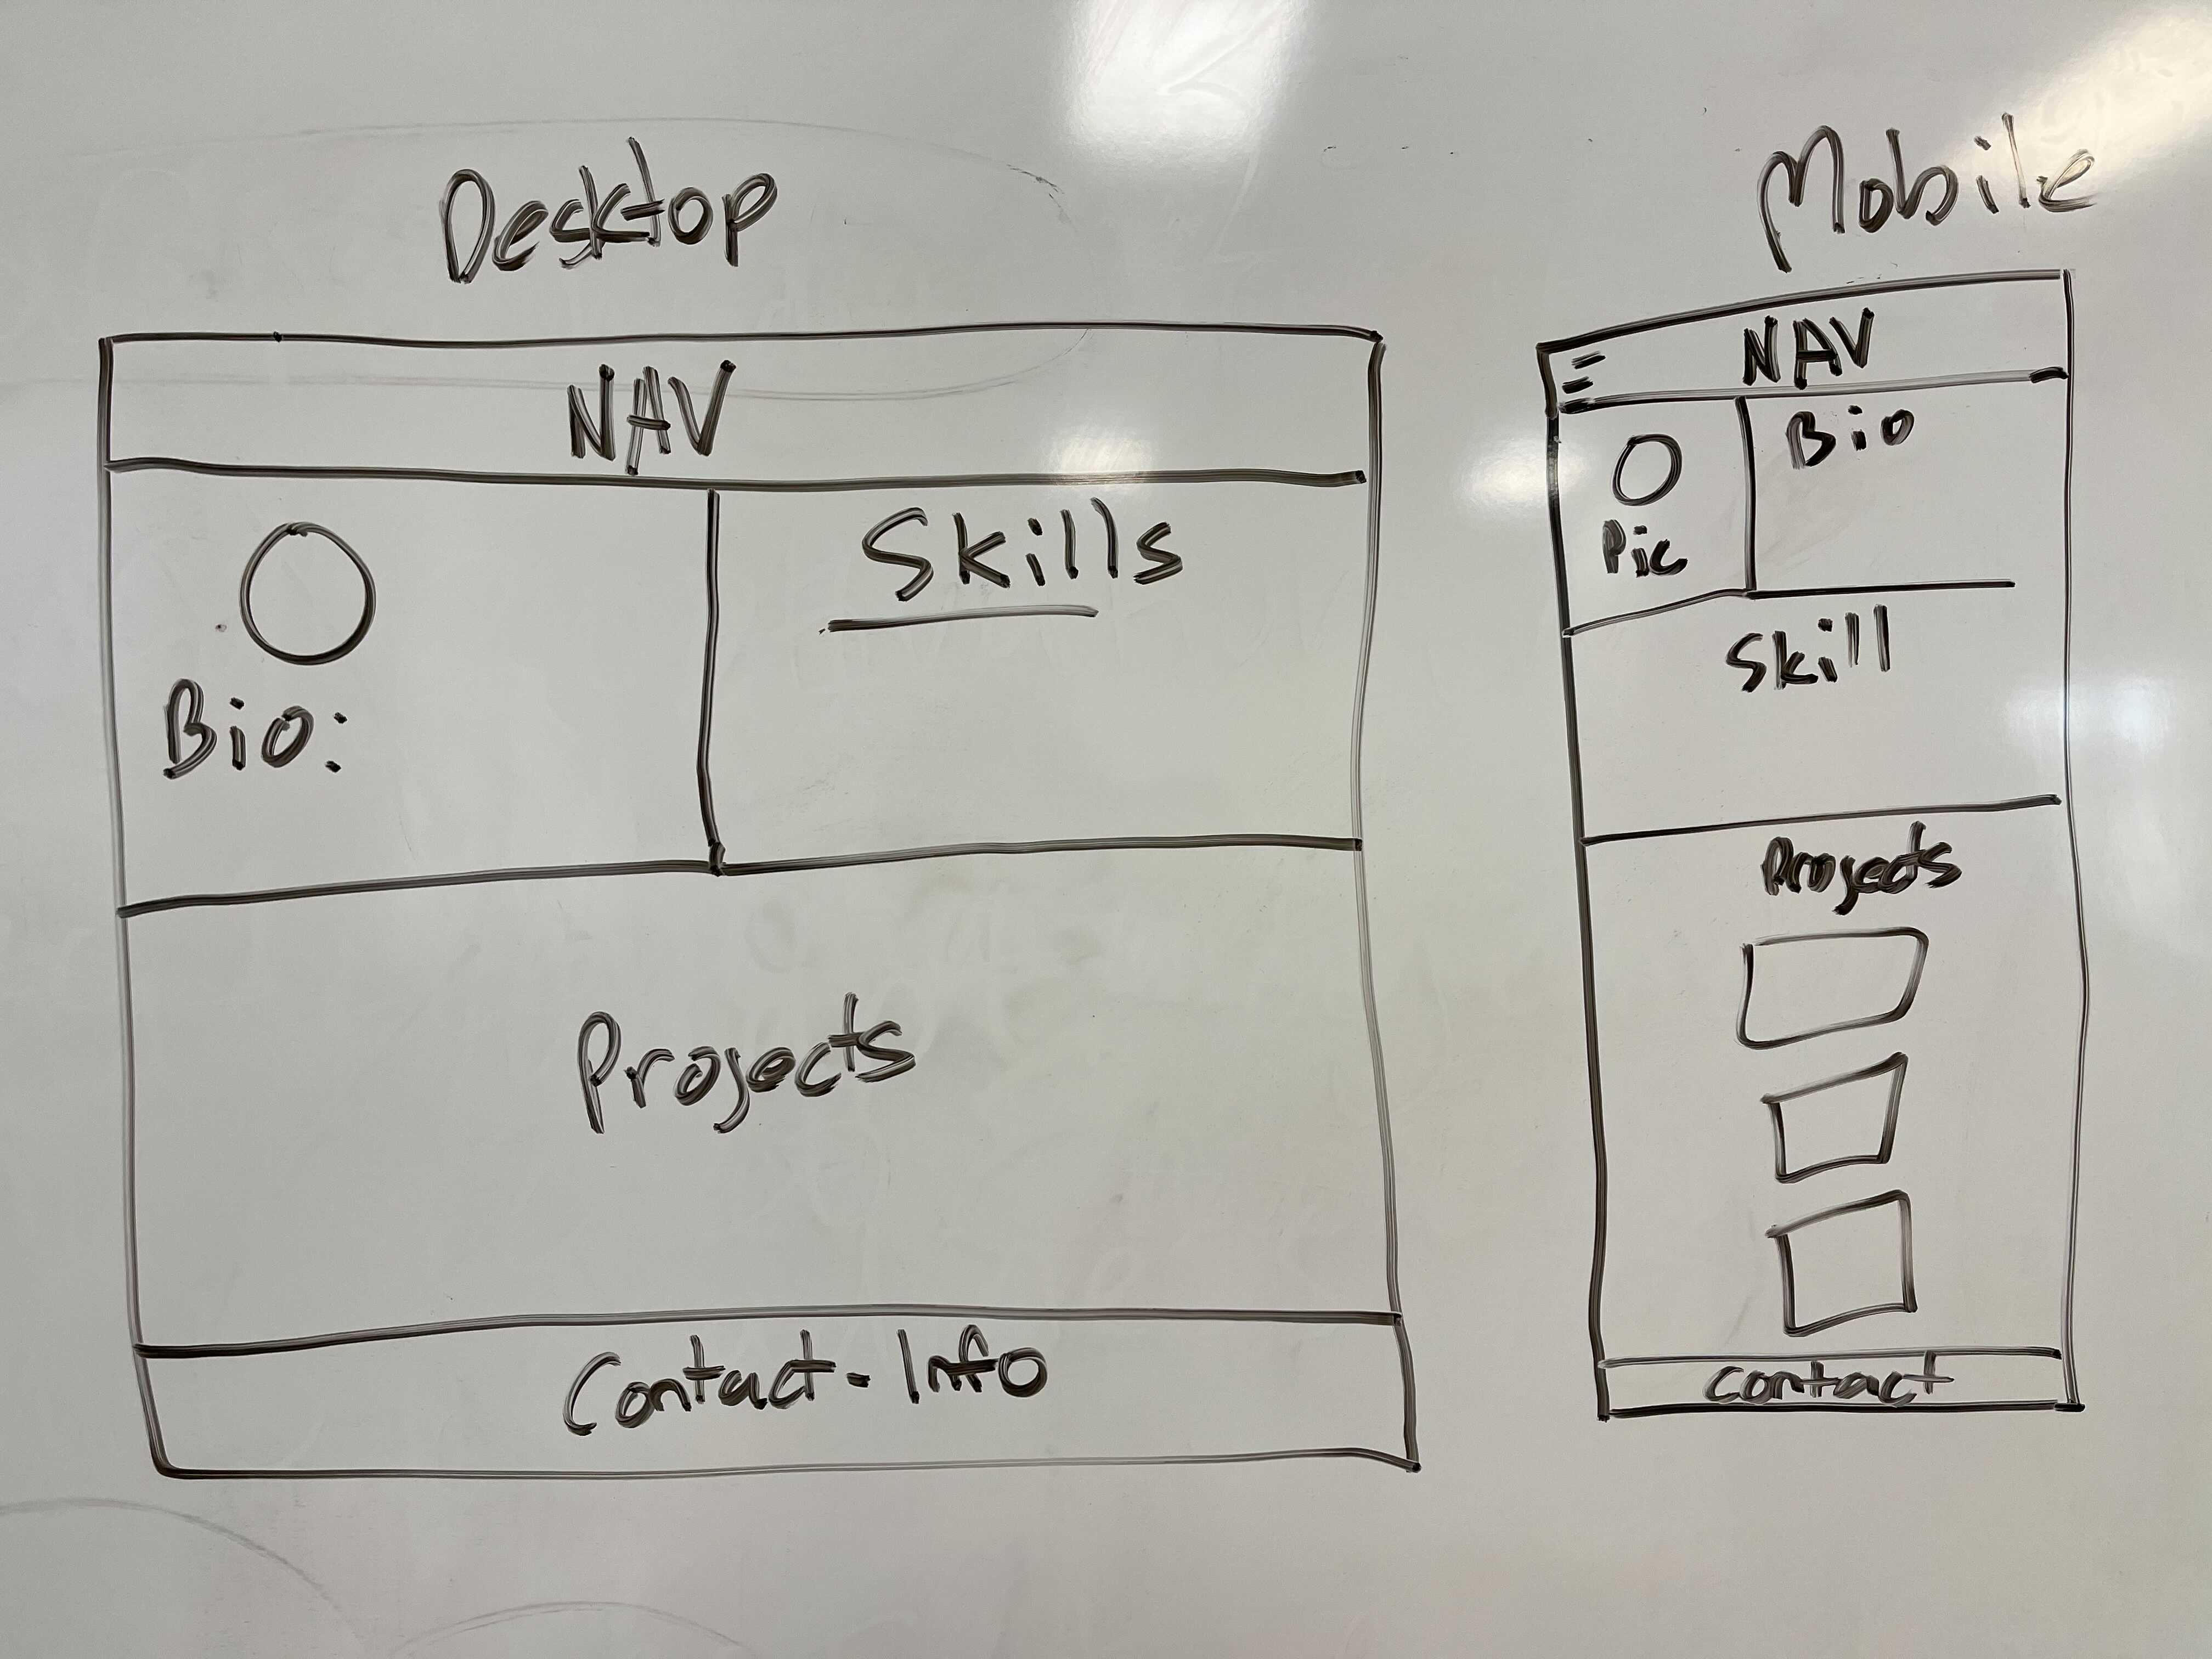 Desktop
NAV
Bio:
Skills
Projects
Contact-Info
Mobile
NAV
Pic
Bio
Skill
Projects
Contact